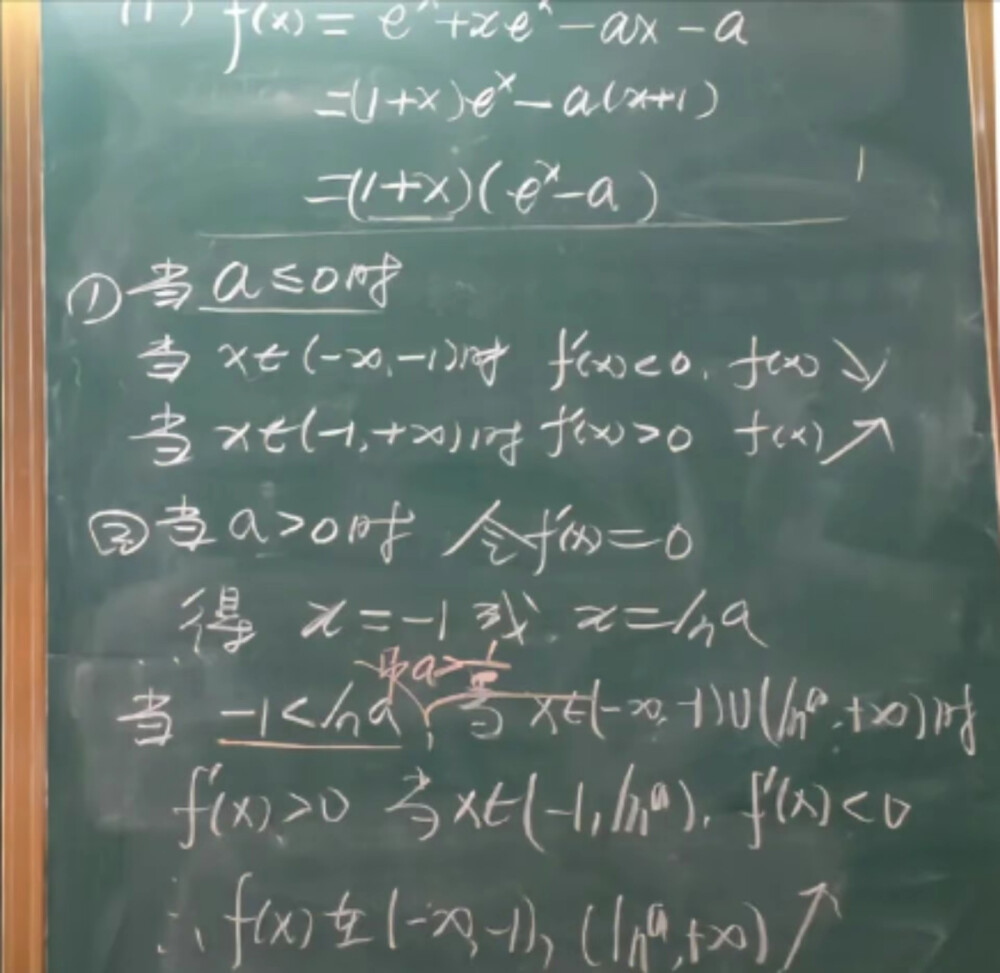 (1) f'(x) = e^x + xe^x - ax - a
=(1+x)e^x - a(x+1)
=(1+x)(e^x - a)
①当 a≤0时
当 x∈(-∞,-1)时 f'(x)<0, f(x)↘
当 x∈(-1,+∞)时 f'(x)>0 f(x)↗
②当 a>0时 令f'(x)=0
得 x=-1或 x=lna
即a>1/e
当 -1<lna, 当 x∈(-∞,-1)∪(lna,+∞)时
f'(x)>0 当x∈(-1,lna), f'(x)<0
∴f(x)在(-∞,-1), (lna,+∞)↗